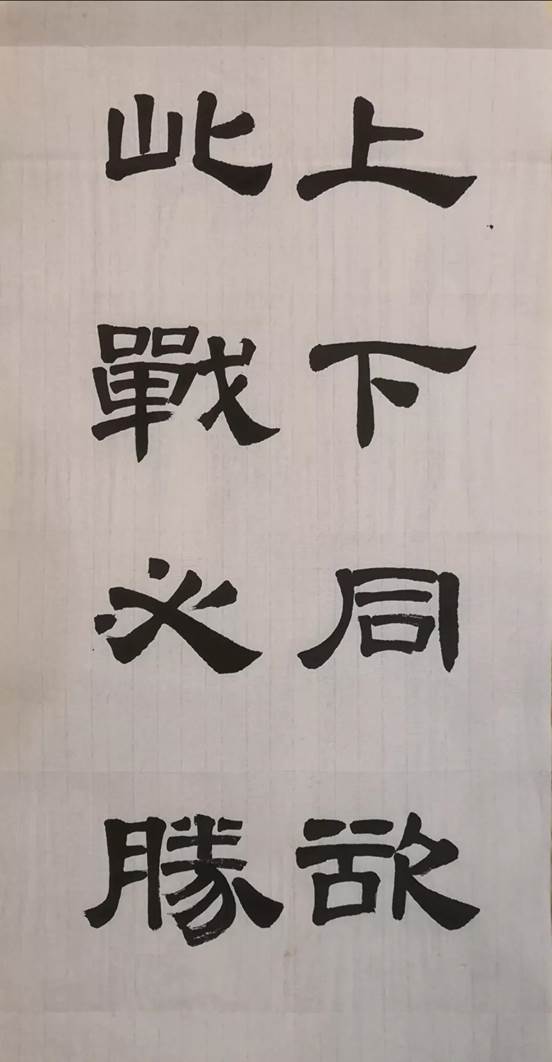 上下同欲
此戰必勝